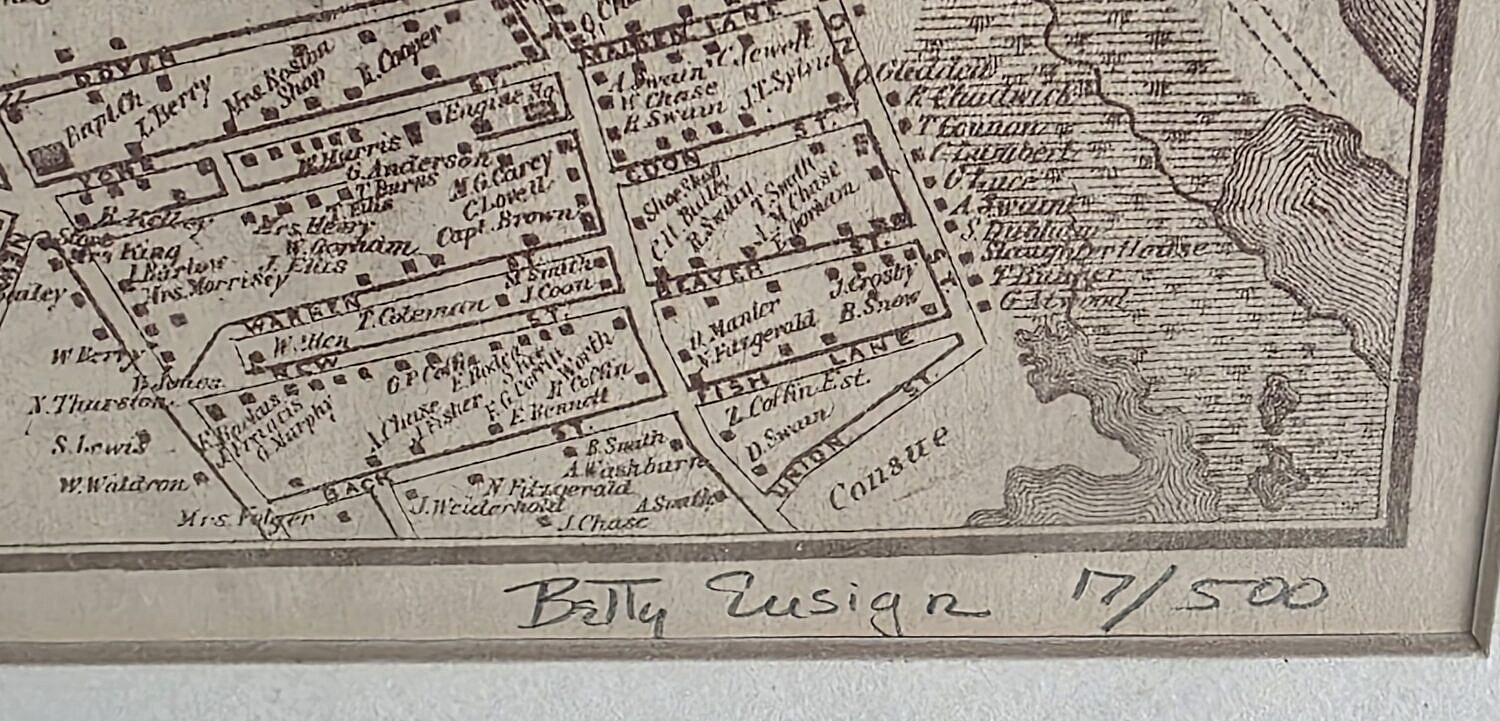 DOVER
ST.
Bapt. Ch
I. Berry
Mrs. Boston
Shop
E. Cooper
YORK
ST.
W. Harris
Engine Ho
G. Anderson
T. Burns
T. Ellis
M. G. Carey
C. Lovell
Capt. Brown
E. Kelley
Store
Mrs. Henry
W. Gorham
I. Ellis
Mrs King
J. Barlow
Mrs. Morrisey
WARREN
ST.
M. Smith
J. Coon
T. Coleman
W. Allen
NEW
ST.
W Berry
N. Thurston
S. Lewis
W. Waldron
Mrs. Folger
G. Murphy
G. P. Coffin
I. Chase
J. Fisher
Worth
H. Coffin
E. Bennett
BACK
ST.
B. Smith
A. Washburn
N Fitzgerald
J. Weiderhold
J. Chase
A Smith
MAIDEN LANE
A. Swain
C. Jewett
W. Chase
J. T. Sylvia
H. Swain
COON
ST.
Shoe Shop
C. H. Bulky
R. Swain
T. Smith
J. M. Chase
BEAVER
ST.
J. Crosby
D. Manter
N. Fitzgerald
B. Snow
FISH
LANE
Z. Coffin Est.
D. Swain
UNION
ST.
UNION
ST.
Consue
R. Chadwick
T Gannon
C. Lumbert
O Luce
A. Swain
S. Dunham
Slaughter House
T. Bunker
G. Atwood
Betty Ensign 17/500